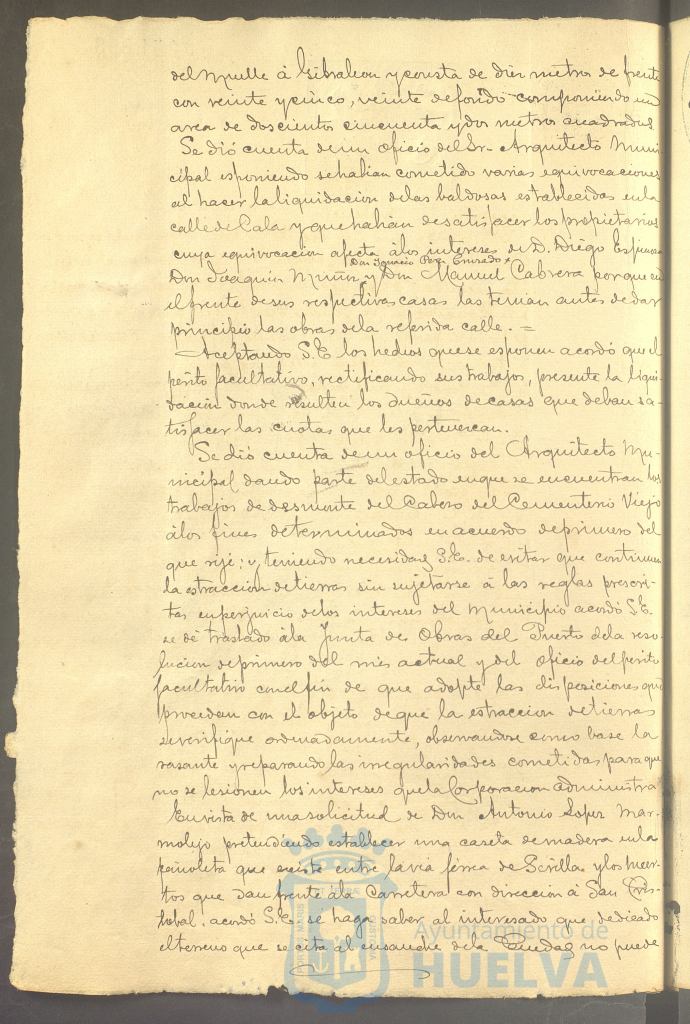 del Muelle á Gibraleon y consta de diez metros de frente
con veinte y cinco, veinte de fondo componiendo un
area de doscientos cincuenta y dos metros cuadrados.
Se dió cuenta de un oficio del Sr. Arquitecto Muni
cipal esponiendo se habian cometido varias equivocaciones
al hacer la liquidacion de las baldosas establecidas en la
calle de Cala y que habian de satisfacer los propietarios
cuya equivocacion afecta á los intereses de D. Diego Espinosa
Don Ignacio Perez
Don Joaquin Muñiz y Don Manuel Cabrera porque en
el frente de sus respectivas casas las tenian antes de dar
principio las obras de la referida calle. =
Aceptando S.E. los hechos que se esponen acordó que el
perito facultativo, rectificando sus trabajos, presente la liqui
dacion donde resulten los dueños de casas que deban sa-
tisfacer las cuotas que les pertenezcan.
Se dió cuenta de un oficio del Arquitecto Mu-
nicipal dando parte del estado en que se encuentran los
trabajos de desmonte del Cabezo del Cementerio Viejo
á los fines determinados en acuerdo de primero del
que rije: y, teniendo necesidad S.E. de evitar que continuen
la estraccion de tierras sin sujetarse á las reglas prescri-
tas en perjuicio de los intereses del Municipio acordó S.E.
se dé traslado á la Junta de Obras del Puerto de la reso-
lucion de primero del mes actual y del oficio del perito
facultativo con el fin de que adopte las disposiciones que
procedan con el objeto de que la estraccion de tierras
se verifique ordenadamente, observandose como base la
rasante y reparando las irregularidades cometidas para que
no se lesionen los intereses que la Corporacion administra
En vista de una solicitud de Don Antonio Lopez Mar-
molejo pretendiendo establecer una caseta de madera en la
que existe entre la via ferrea de Sevilla y los huer-
tos que dan frente á la Carretera con direccion á San Cris-
tobal, acordó S.E. se haga saber al interesado que, dedicado
el terreno que se cita al ensanche de la Ciudad no puede
Ayuntamiento de
HUELVA